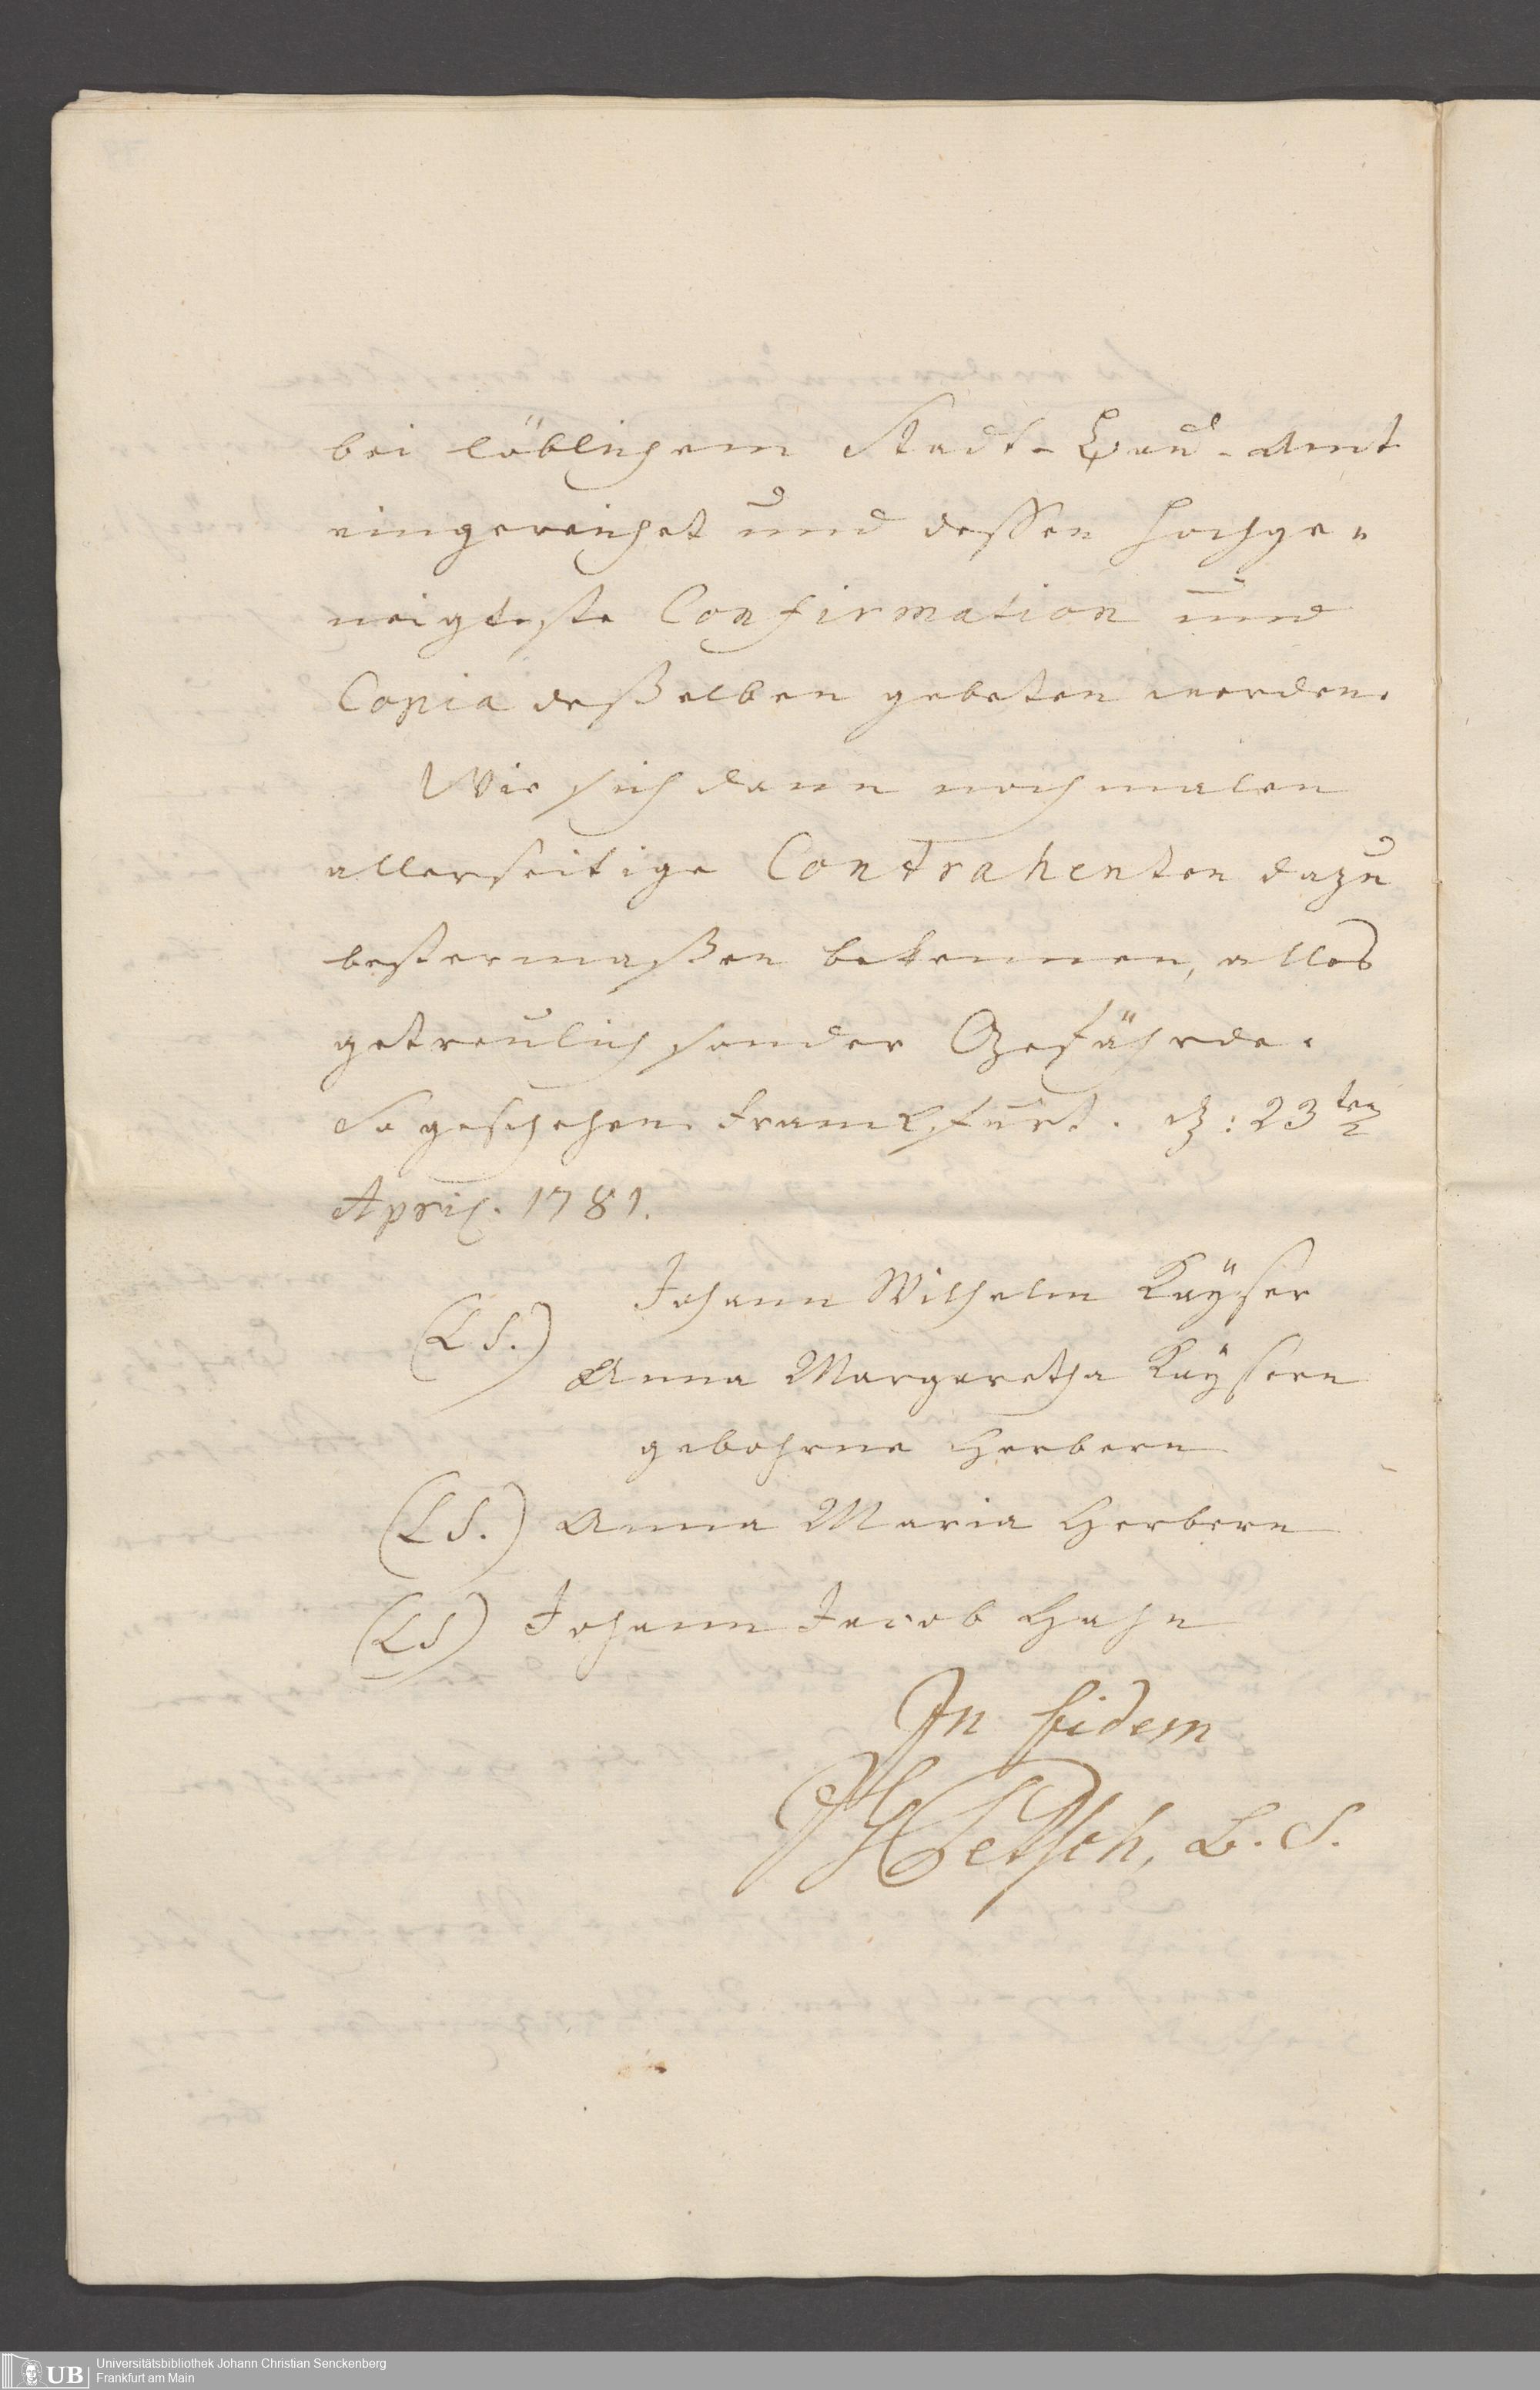 bei löblichem Stadt-Bau-Amt
eingereichet und dessen hochge„
neigteste Confirmation und
Copia deßelben gebeten worden.
Wie sich dann nochmalen
allerseitige Contrahenten dazu
bestermaßen bekennen, alles
getreulich sonder Gefährde.
So geschehen Franckfurt. d: 23ten
April. 1781.
Johann Wilhelm Kayser
(LS.)
Anna Margaretha Kaysern
gebohrne Herbern
(LS.) Anna Maria Herbern
(LS) Johann Jacob Hahn
In fidem
Petsch, B. S.
UB Universitätsbibliothek Johann Christian Senckenberg
Frankfurt am Main